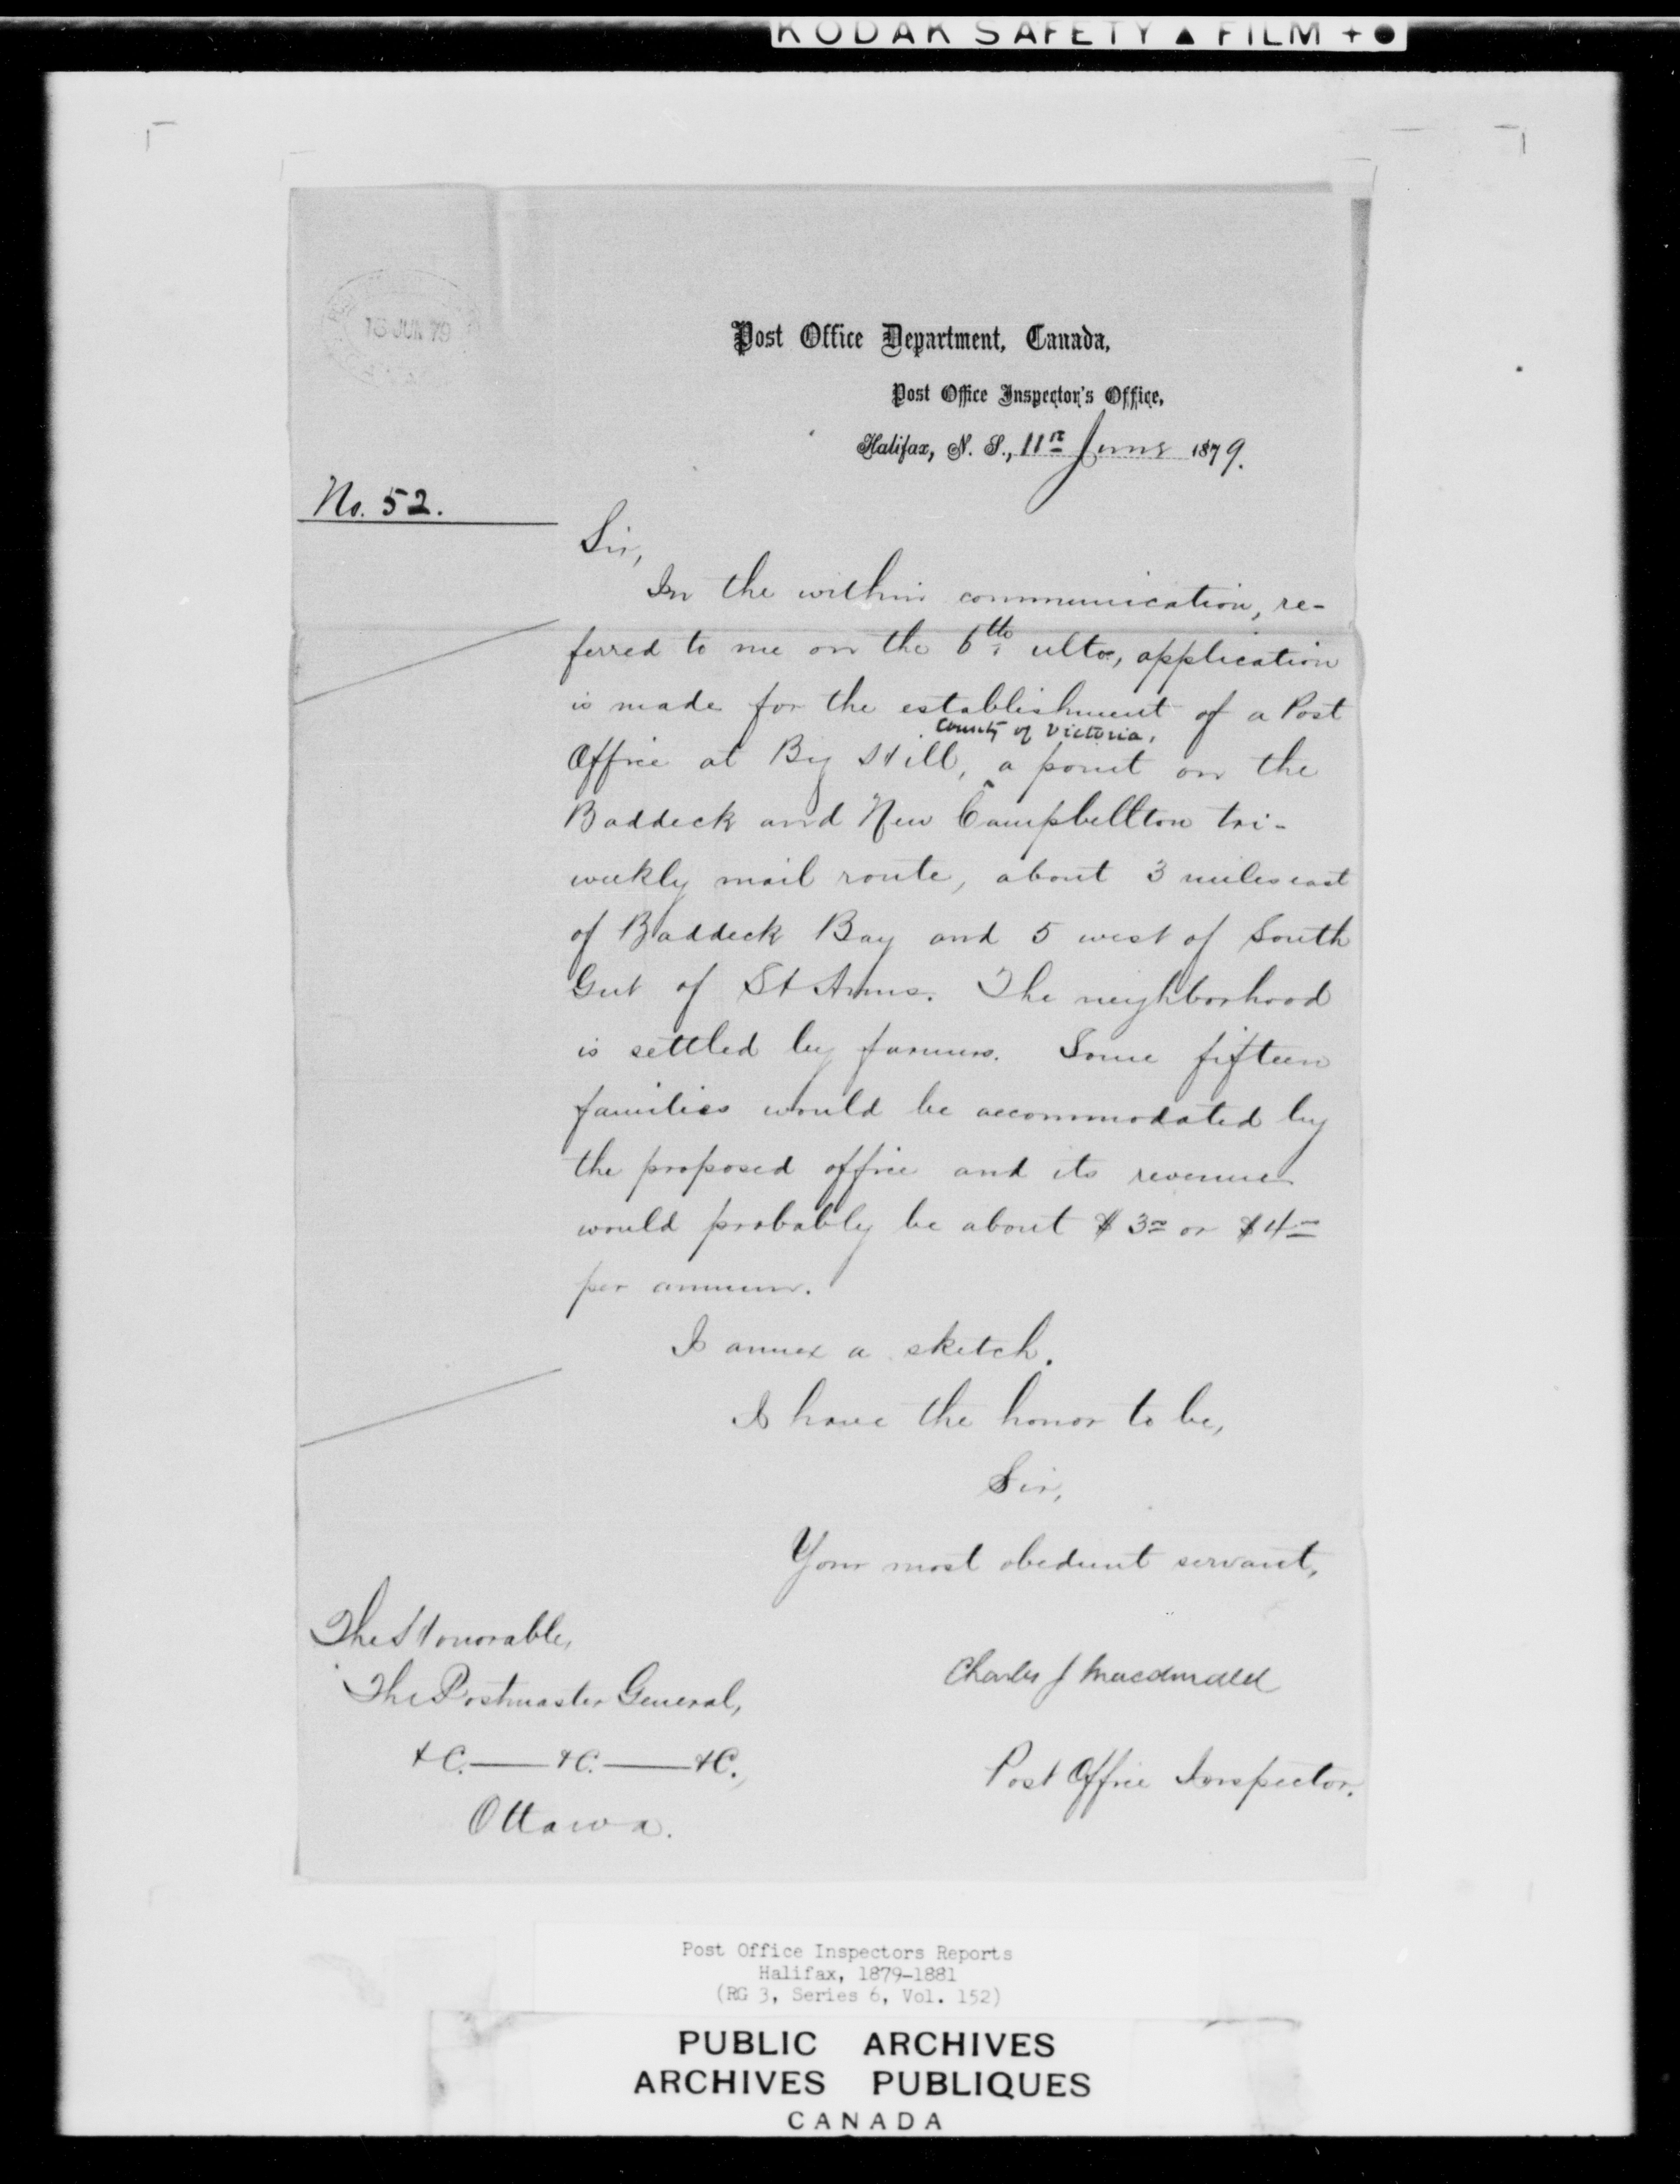 KODAK SAFETY ▲ FILM + ●
JUN 79
Post Office Department, Canada,
Post Office Inspector's Office,
Halifax, N. S., 11th June 1879.
No. 52.
Sir,
In the within communication, re-
ferred to me on the 6th ulto, application
is made for the establishment of a Post
County of Victoria,
Office at Big Hill, a point on the
Baddeck and New Campbellton tri-
weekly mail route, about 3 miles east
of Baddeck Bay and 5 west of South
Gut of St Anns. The neighborhood
is settled by farmers. Some fifteen
families would be accommodated by
the proposed office and its revenue
would probably be about $3.00 or $4.00
per annum.
I annex a sketch.
I have the honor to be,
Sir,
Your most obedient servant,
The Honorable,
Charles J Macdonald
The Postmaster General,
&C.——&C.——&C.,
Post Office Inspector.
Ottawa.
Post Office Inspectors Reports
Halifax, 1879-1881
(RG 3, Series 6, Vol. 152)
PUBLIC ARCHIVES
ARCHIVES PUBLIQUES
CANADA